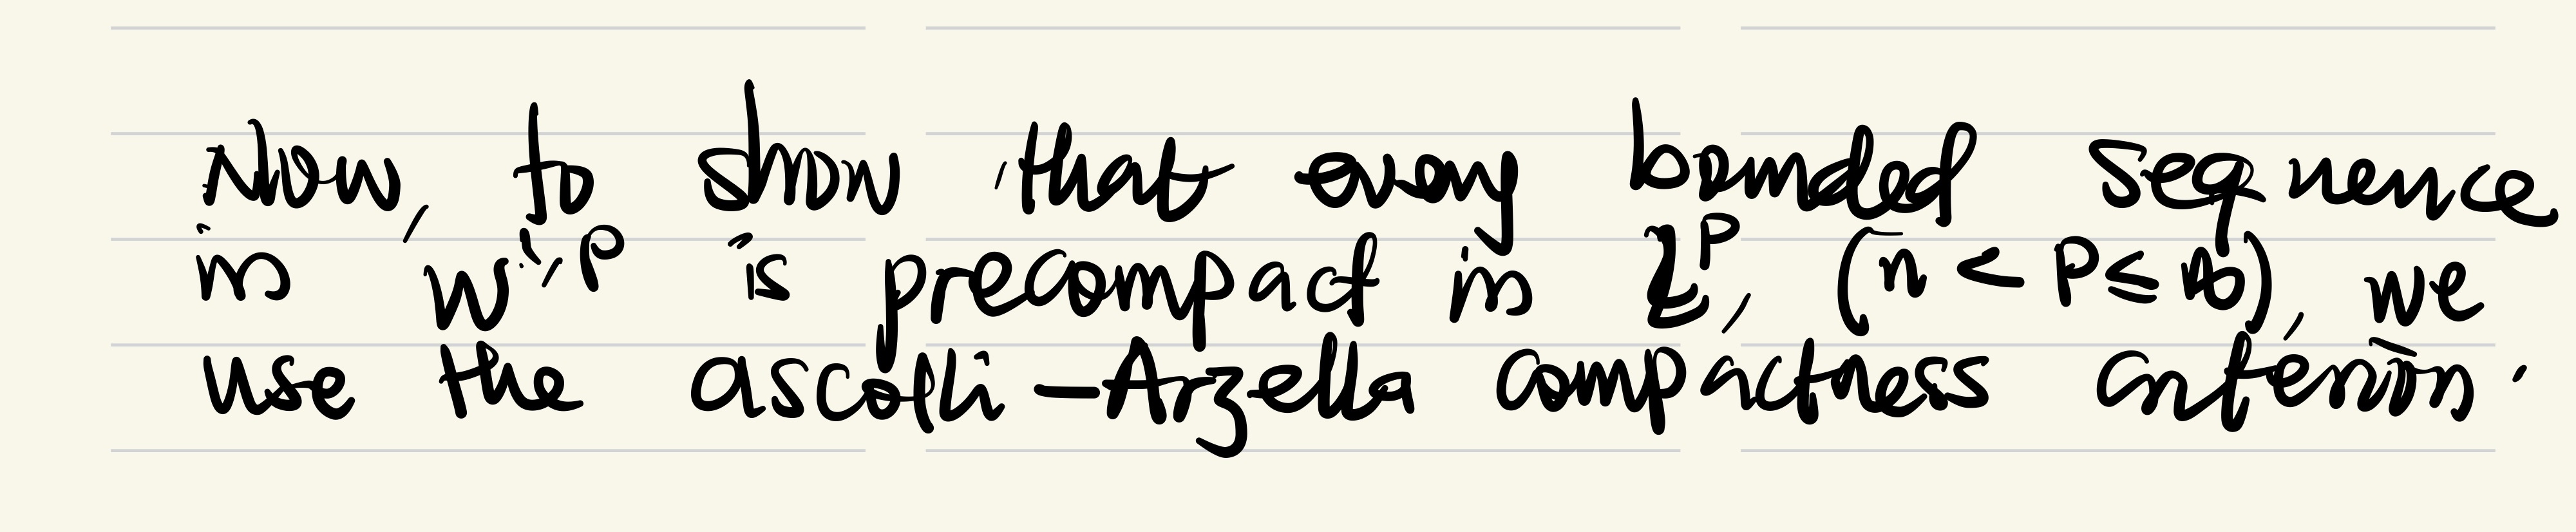 Now, to show that every bounded sequence
in W^{1,p} is precompact in L^p, (n < p ≤ ∞), we
use the ascolli-Arzella compactness criterion.